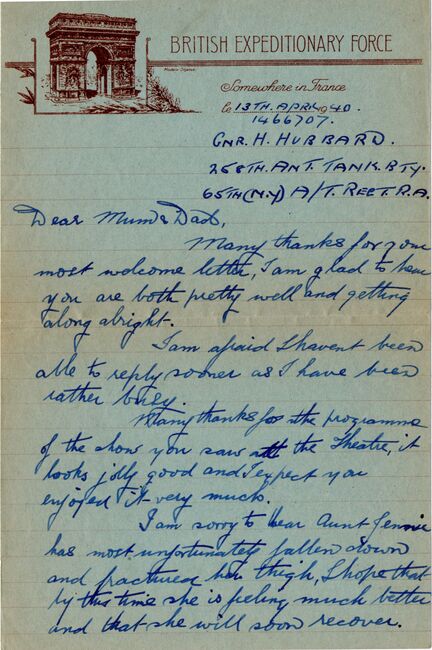 BRITISH EXPEDITIONARY FORCE
Somewhere in France
le 13TH. APRIL 1940.
1466707.
GNR. H. HUBBARD.
258TH. ANT. TANK. BTY.
65TH (N.Y) A/T. REGT. R.A.
Dear Mum & Dad,
Many thanks for your
most welcome letter, I am glad to hear
you are both pretty well and getting
along alright.
I am afraid I havent been
able to reply sooner as I have been
rather busy.
Many thanks for the programme
of the show you saw at the Theatre, it
looks jolly good and I expect you
enjoyed it very much.
I am sorry to hear Aunt Jennie
has most unfortunately fallen down
and fractured her thigh, I hope that
by this time she is feeling much better
and that she will soon recover.